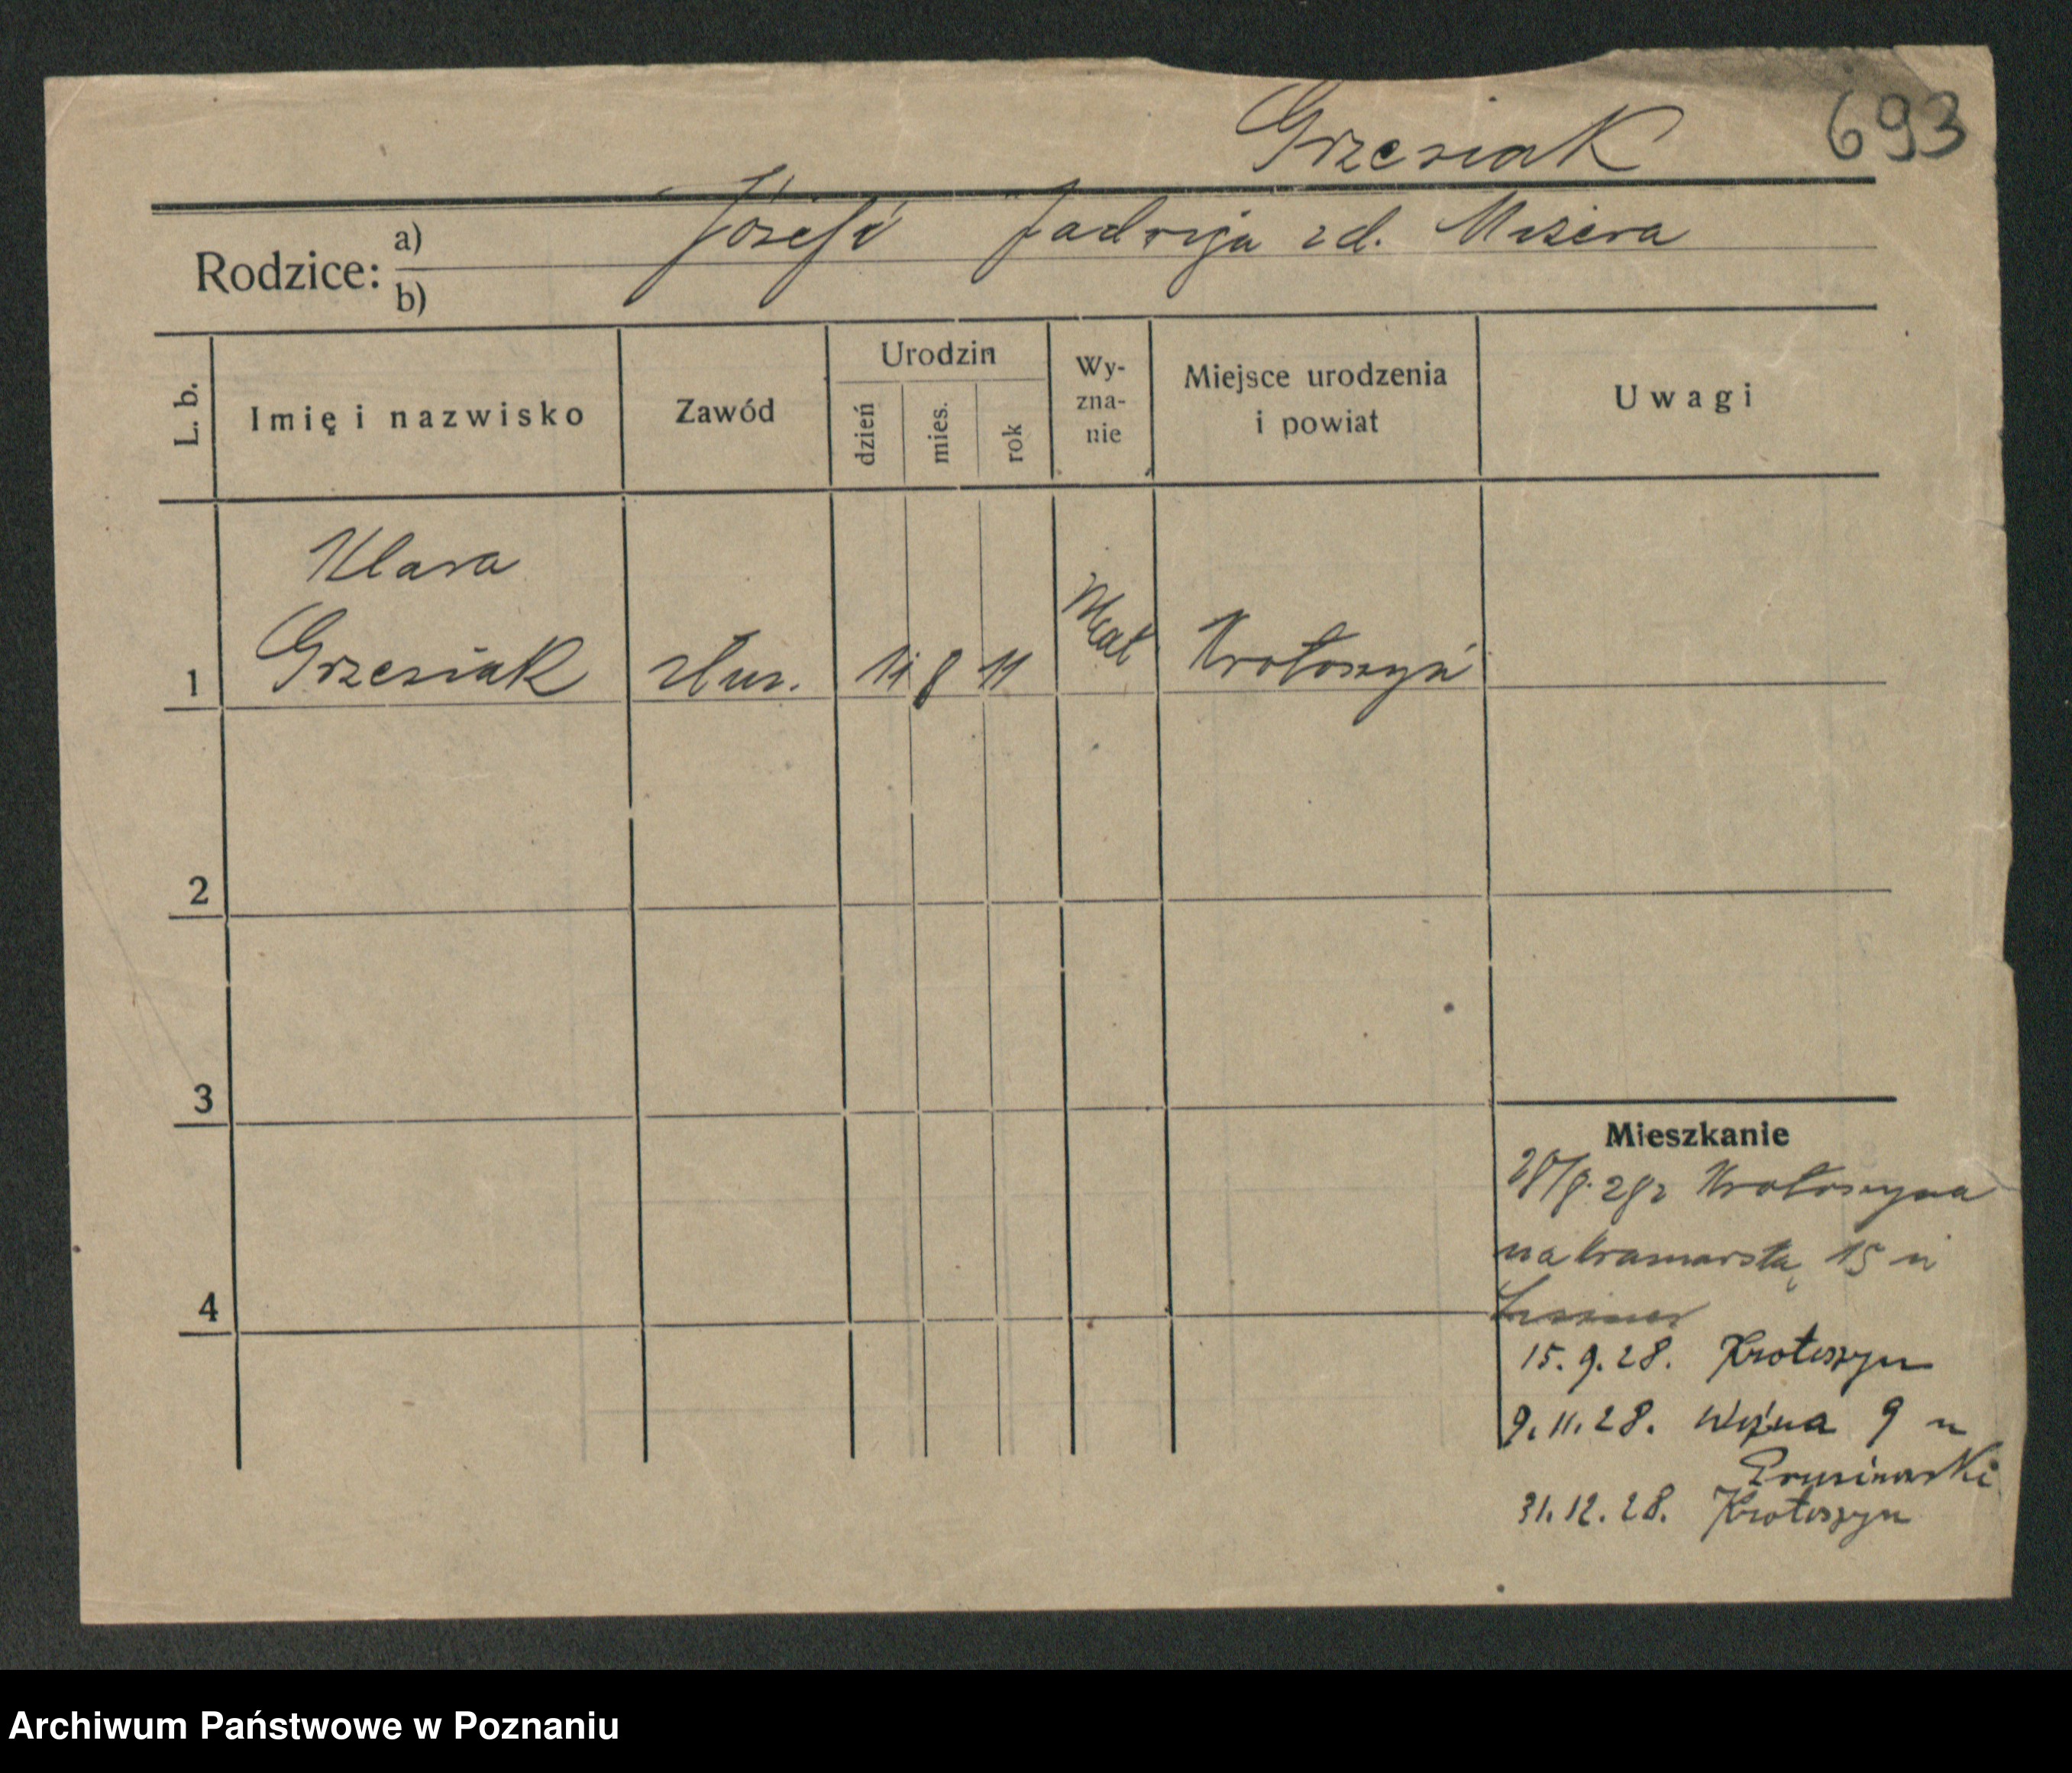 693
Grzesiak
Rodzice: a) Józef i Jadwiga zd. Mizera
b)
L. b. Imię i nazwisko Zawód Urodzin dzień mies. rok Wy-zna-nie Miejsce urodzenia i powiat Uwagi
Klara
1 Grzesiak służ. 11 8 11 Kat Krotoszyń
2
3
4
Mieszkanie
28/8. 28 z Krotoszyna
na Kramarską 15 u
15. 9. 28. Krotoszyn
9. 11. 28. Woźna 9 u
Prusinowski
31. 12. 28. Krotoszyn
Archiwum Państwowe w Poznaniu